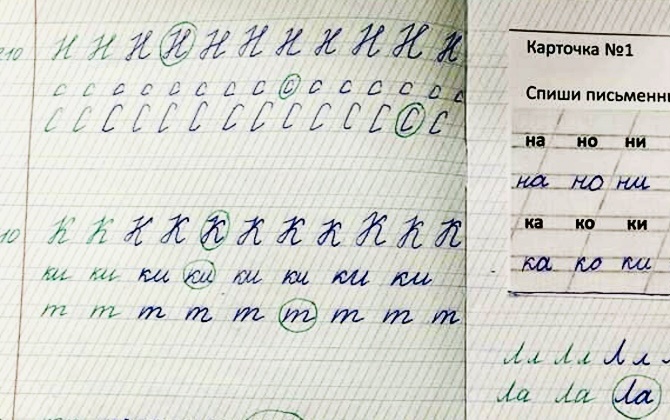 Н Н Н Н Н Н Н Н Н Н Н
с с с с с с с с с с с с с с с
С С С С С С С С С С С С С С
10 К К К К К К К К К К К
ки ки ки ки ки ки ки ки
т т т т т т т т т
Карточка №1
Спиши
на но ни
на но ни
ка ко ки
ка ко ки
Лл Лл Лл
Ла Ла Ла